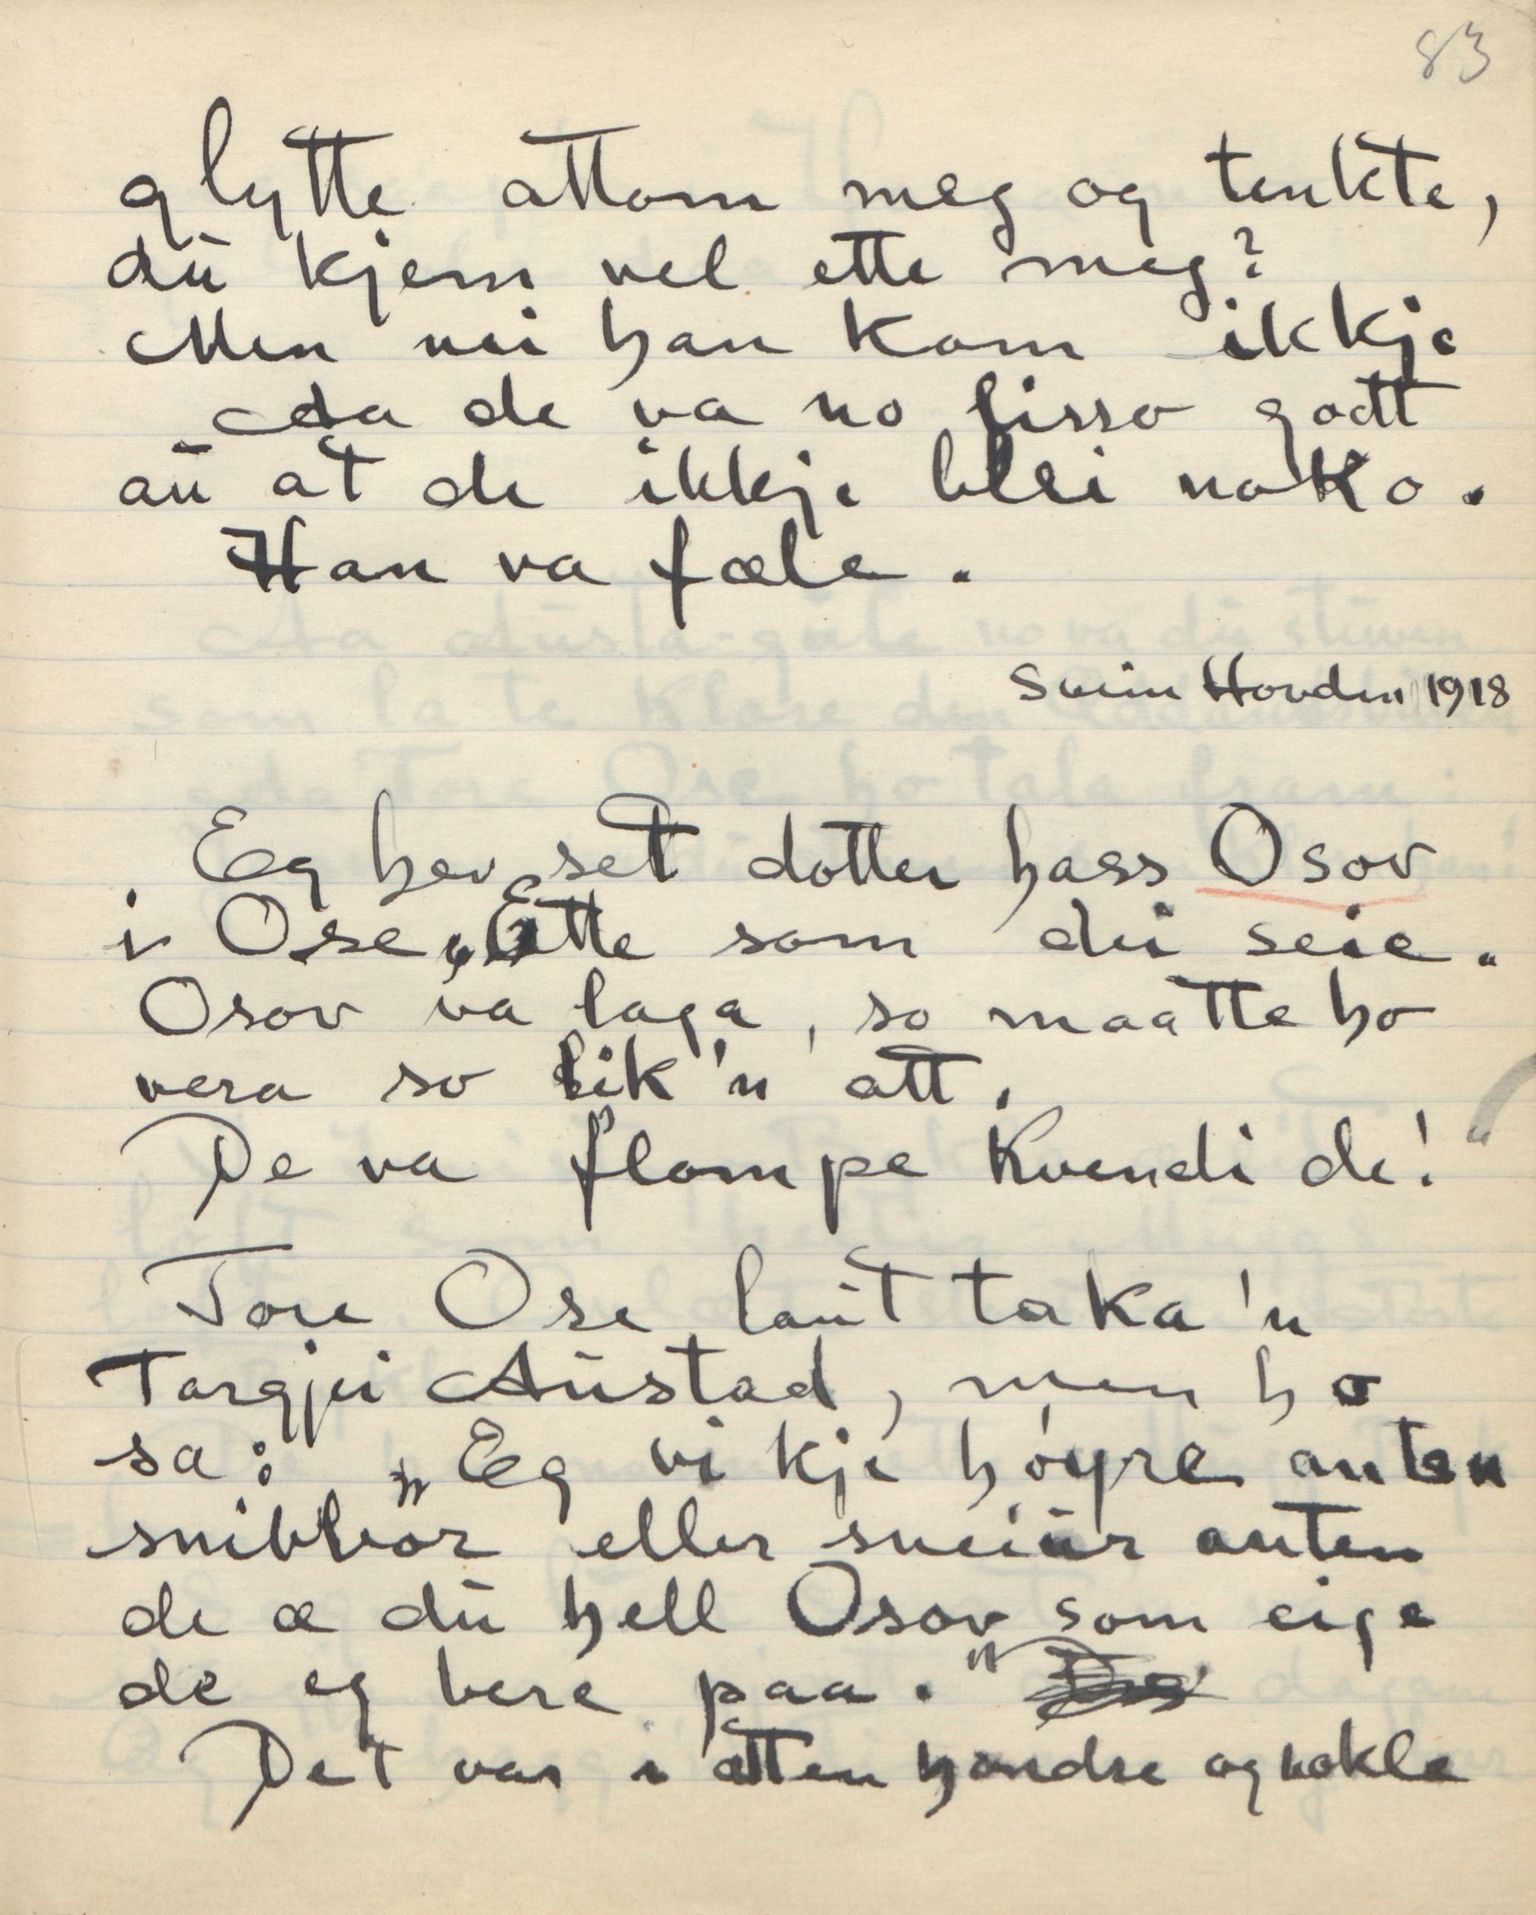 83
glytte attom meg og tenkte,
du kjem vel ette meg?
Men nei han kom ikkje
Aa de va no lisso godt
au at de ikkje blei noko.
Han va fæle.
Svein Hovden 1918
Eg hev set dotter hass Osov
i Ose. Ette som dei seie.
Osov va laga, so maatte ho
vera so lik 'n att.
De va flompe kvendi de!"
Tore Ose laut taka 'n
Targjei Austad, men ho
sa: „Eg vi kje høyre anten
snibbor eller sneiur anten
de æ du hell Osov som eige
de eg bere paa."
Det var i atten hondre og nokle